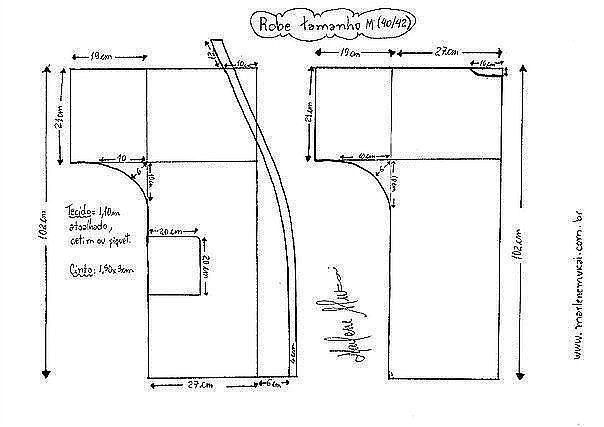 Robe tamanho M (40/42)
19cm
10cm
21cm
102cm
10
6
10cm
Tecido= 1,10m
atoalhado,
cetim ou piquet.
Cinto: 1,90x3cm
20cm
20cm
27cm
6cm
19cm
27cm
16cm
21cm
10cm
6
10cm
102cm
www.marlenemukai.com.br